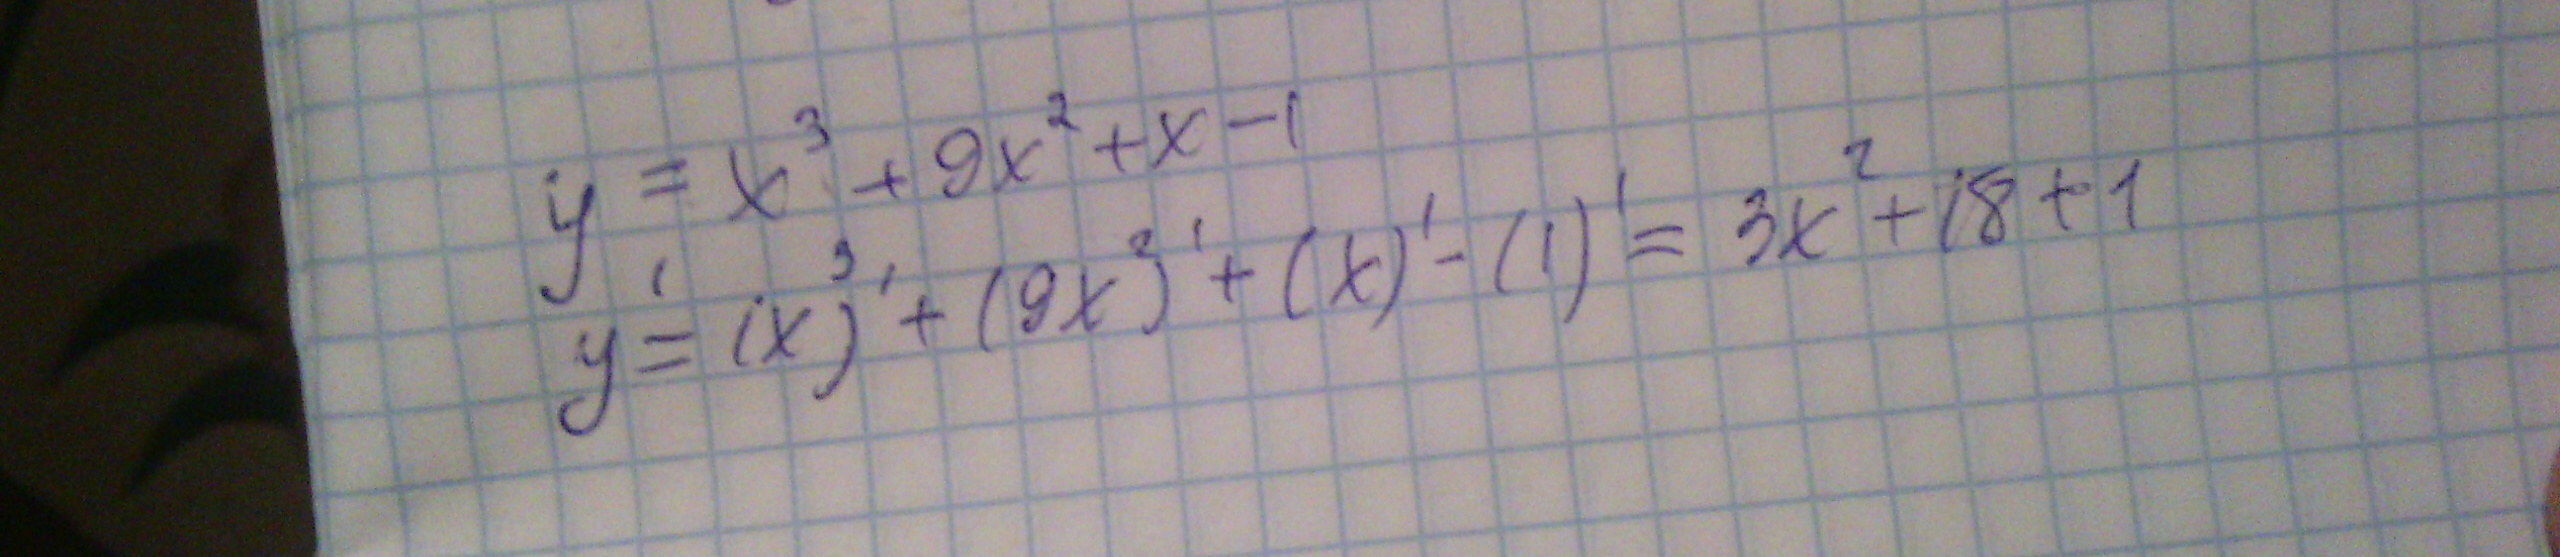 y = x³ + 9x² + x - 1
y' = (x³)' + (9x²)' + (x)' - (1)' = 3x² + 18 + 1